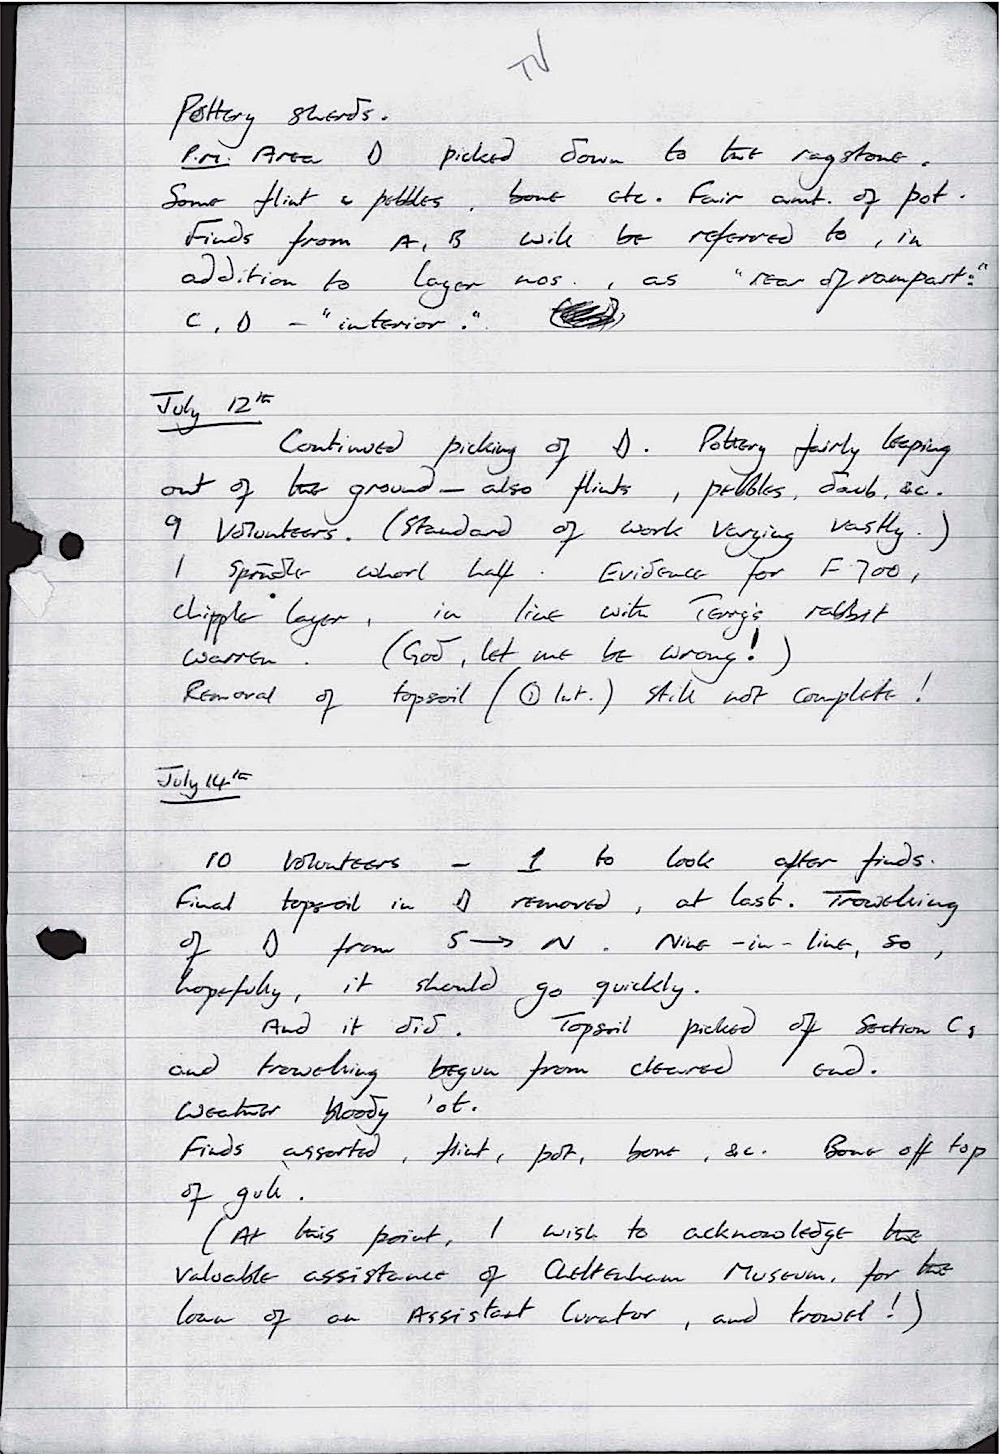 TV
Pottery sherds.
P.M. Area D picked down to the ragstone.
Some flint & pebbles, bone etc. Fair amt. of pot.
Finds from A, B will be referred to, in
addition to layer nos., as "rear of rampart:"
C, D - "interior."
July 12th
Continued picking of D. Pottery fairly leaping
out of the ground - also flints, pebbles, daub, &c.
9 Volunteers. (Standard of work varying vastly.)
1 spindle whorl half. Evidence for F 700,
chipple layer, in line with Terry's rabbit
warren. (God, let me be wrong!)
Removal of topsoil (① Int.) still not complete!
July 14th
10 Volunteers - 1 to look after finds.
Final topsoil in D removed, at last. Trowelling
of D from S → N. Nine-in-line, so,
hopefully, it should go quickly.
And it did. Topsoil picked off Section C,
and trowelling begun from cleared end.
Weather bloody 'ot.
Finds assorted, flint, pot, bone, &c. Bone off top
of gull.
(At this point, I wish to acknowledge the
valuable assistance of Cheltenham Museum, for the
loan of an Assistant Curator, and trowel!)